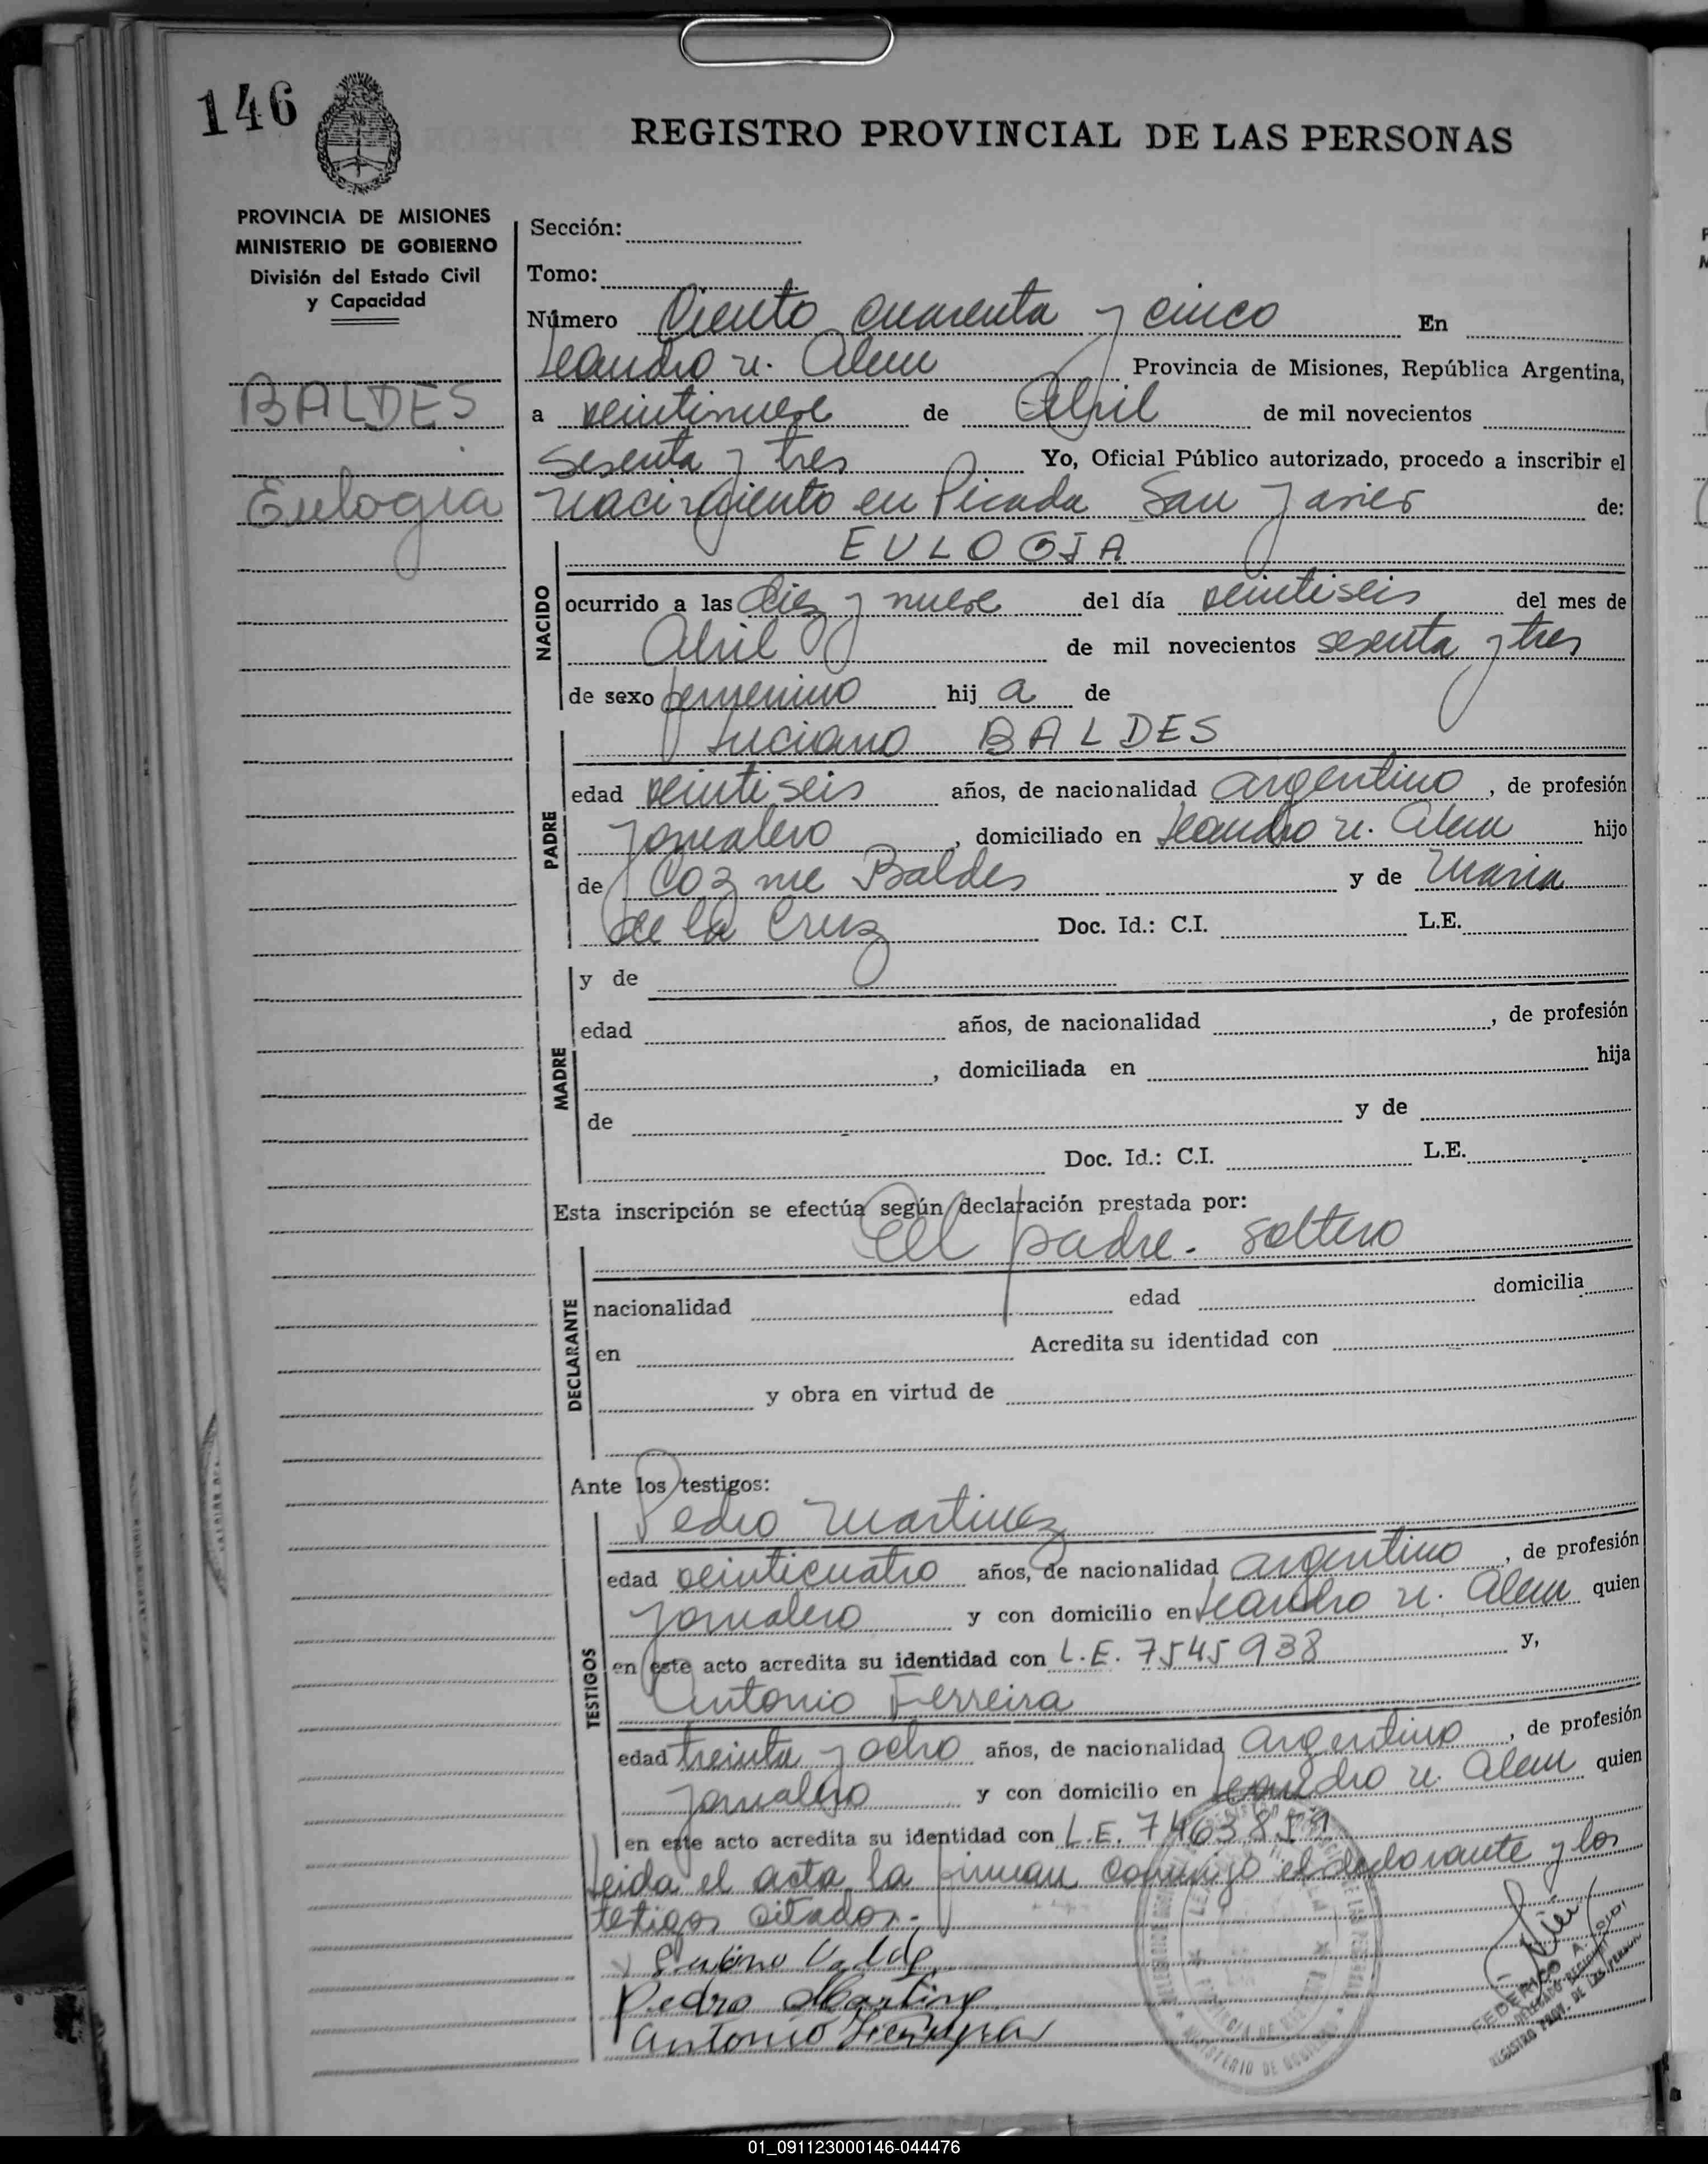 146
REGISTRO PROVINCIAL DE LAS PERSONAS
PROVINCIA DE MISIONES
MINISTERIO DE GOBIERNO
División del Estado Civil
y Capacidad
BALDES
Eulogia
Sección:
Tomo:
Número Ciento cuarenta y cinco En
Leandro N. Alem Provincia de Misiones, República Argentina,
a veintinueve de Abril de mil novecientos
sesenta y tres Yo, Oficial Público autorizado, procedo a inscribir el
nacimiento en Picada San Javier de:
NACIDO
EULOGIA
ocurrido a las diez y nueve del día veintiseis del mes de
Abril de mil novecientos sesenta y tres
de sexo femenino hij a de
PADRE
Luciano BALDES
edad veintiseis años, de nacionalidad argentino, de profesión
Jornalero, domiciliado en Leandro N. Alem hijo
de Cozme Baldes y de Maria
de la Cruz Doc. Id.: C.I. L.E.
MADRE
y de
edad años, de nacionalidad , de profesión
, domiciliada en hija
de y de
Doc. Id.: C.I. L.E.
Esta inscripción se efectúa según declaración prestada por:
DECLARANTE
El padre - soltero
nacionalidad edad domicilia
en Acredita su identidad con
y obra en virtud de
Ante los testigos:
TESTIGOS
Pedro Martinez
edad veinticuatro años, de nacionalidad argentino, de profesión
Jornalero y con domicilio en Leandro N. Alem quien
en este acto acredita su identidad con L.E. 7545938 y,
Antonio Ferreira
edad treinta y ocho años, de nacionalidad argentino, de profesión
Jornalero y con domicilio en Leandro N. Alem quien
en este acto acredita su identidad con L.E.
Leida el acta la firman conmigo el declarante y los
testigos citados.-
Pedro Martine
Antonio
FEDERICO A.
DELEGADO REGIONAL
REGISTRO PROV. DE LAS PERSONAS
MINISTERIO DE GOBIERNO
01_091123000146-044476